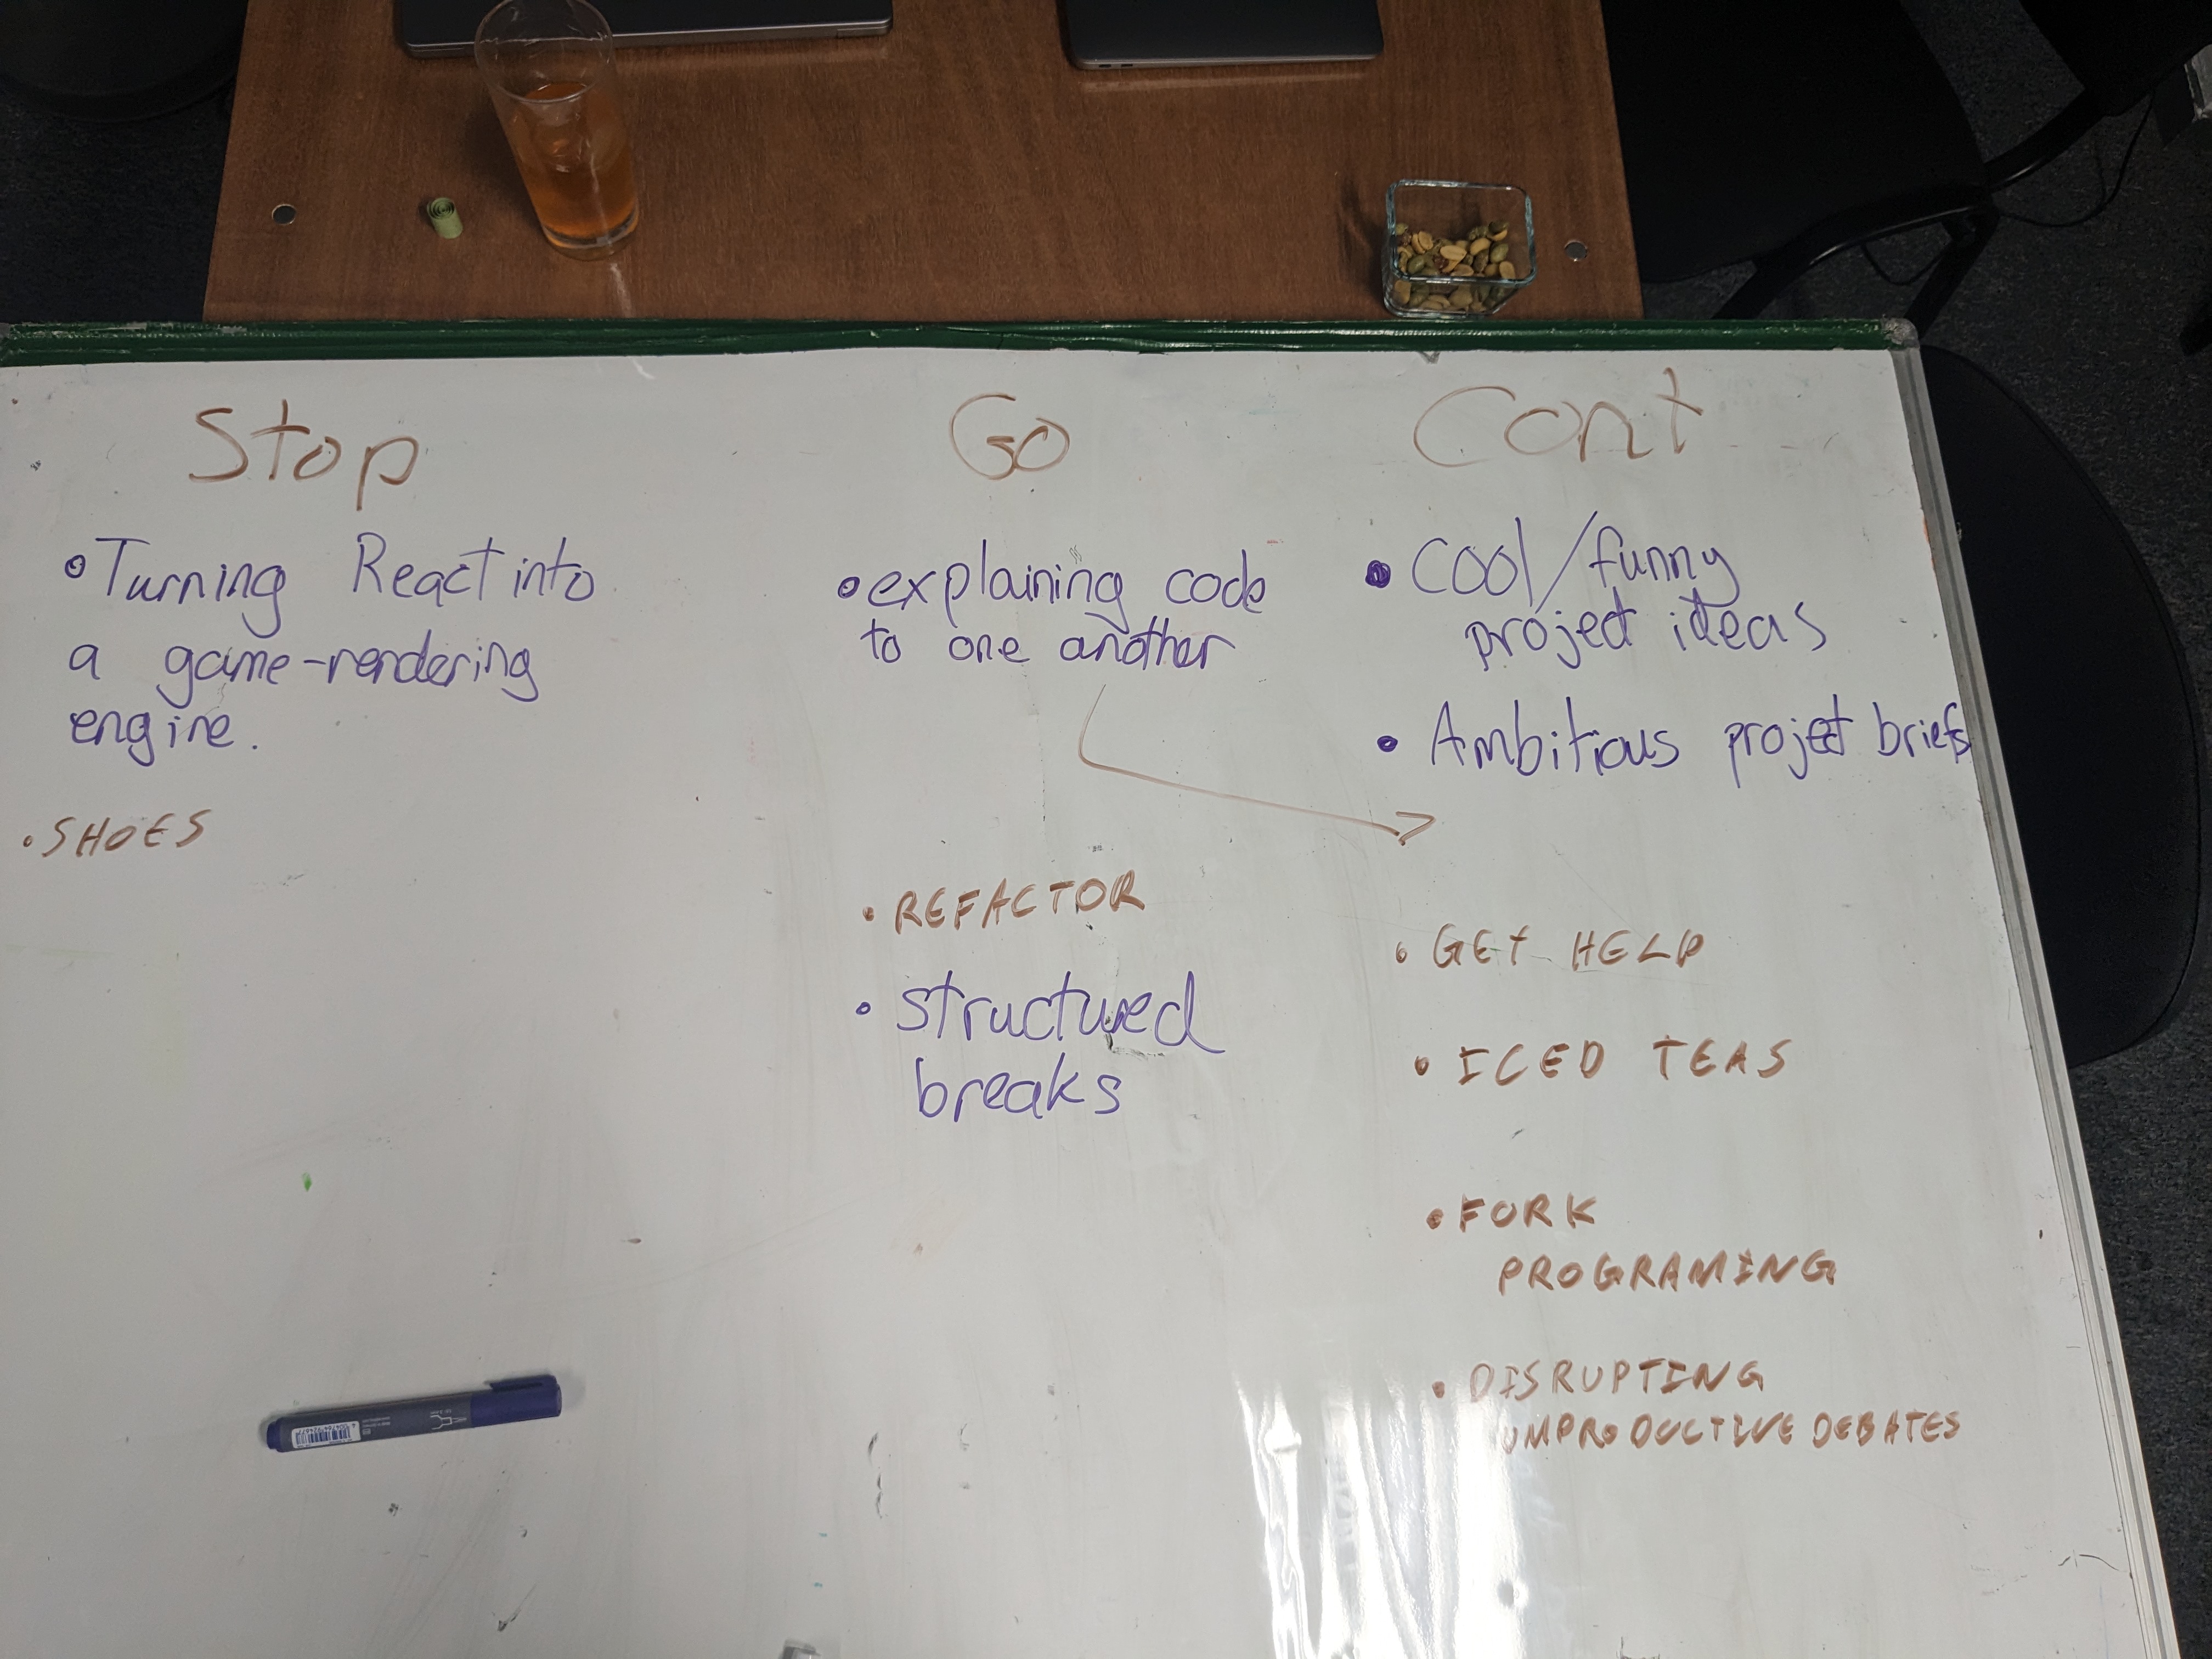 Stop
•Turning React into
a game-rendering
engine.
•SHOES
Go
•explaining code
to one another
•REFACTOR
•structured
breaks
Cont
•Cool/funny
project ideas
•Ambitious project briefs
•GET HELP
•ICED TEAS
•FORK
PROGRAMING
•DISRUPTING
UNPRODUCTIVE DEBATES